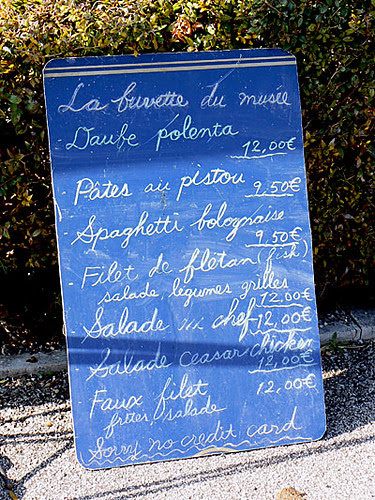 La buvette du musée
Daube polenta
12,00€
Pâtes au pistou
9.50€
Spaghetti bolognaise
9.50€
Filet de flétan (fish)
salade, légumes grilles
12,00€
Salade du chef 12,00€
Salade Ceasar chicken
12,00€
Faux filet 12,00€
frites, salade
Sorry no credit card